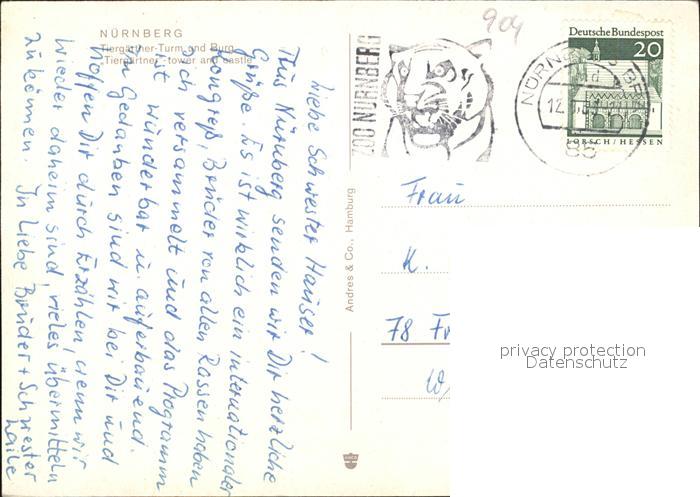 904
NÜRNBERG
Tiergärtner-Turm und Burg
"Tiergärtner"-tower and castle
ZOO NÜRNBERG
Deutsche Bundespost
20
LORSCH/HESSEN
NÜRNBERG
12.
85
Liebe Schwester Hauser!
Aus Nürnberg senden wir Dir herzliche
Grüße. Es ist wirklich ein internationaler
Kongreß, Brüder von allen Rassen haben
sich versammelt und das Programm
ist wunderbar u. auferbauend.
In Gedanken sind wir bei Dir und
hoffen Dir durch Erzählen, wenn wir
wieder daheim sind, vieles übermitteln
zu können. In Liebe Brüder + Schwester
Laile
Andres & Co., Hamburg
Frau
K.
78 Fr
W
privacy protection
Datenschutz